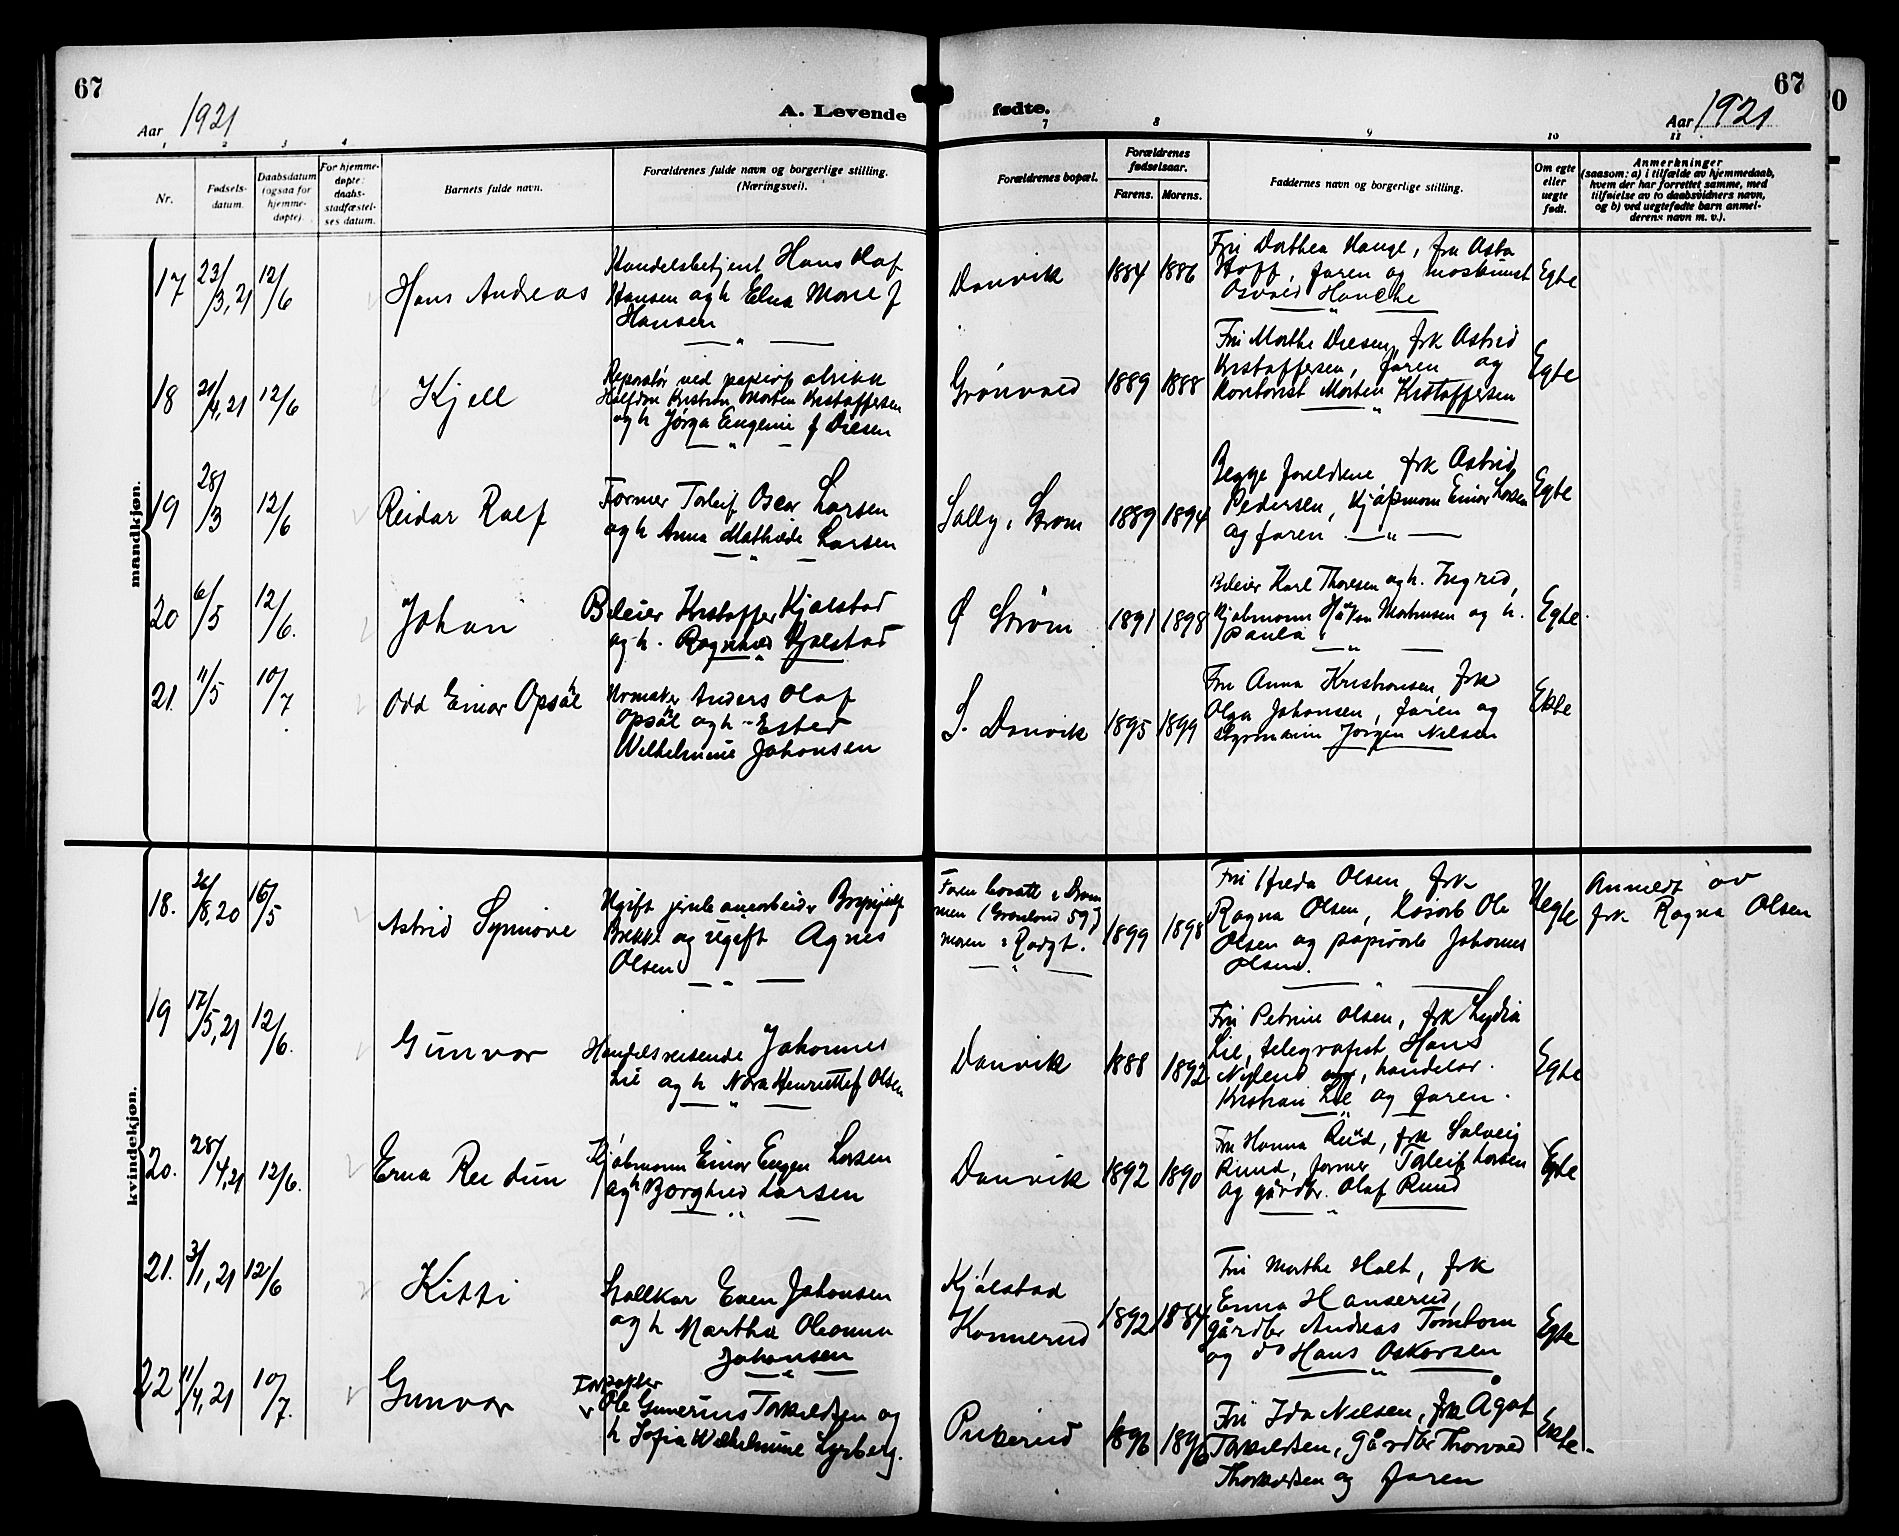 67
67
A. Levende fødte.
Aar 1921
Aar 1921
1 2 3 4 7 8 9 10 11
Nr.
Fødsels-datum.
Daabsdatum (ogsaa for hjemme-døpte).
For hjemme-døpte: daabs-stadfæstel-ses datum.
Barnets fulde navn.
Forældrenes fulde navn og borgerlige stilling. (Næringsvei).
Forældrenes bopæl.
Forældrenes fødselsaar.
Farens. Morens.
Faddernes navn og borgerlige stilling.
Om egte eller uegte født.
Anmerkninger
(saasom: a) i tilfælde av hjemmedaab, hvem der har forrettet samme, med tilføielse av to daabsvidners navn, og b) ved uegtefødte barn anmel-derens navn m. v.).
mandkjøn.
17 23/3,21 12/6 Hans Andreas
Handelsbetjent Hans Olaf
Hansen og h Elna Marie f
Hansen
Danvik 1884 1886
Fru Dorthea Hauge, fru Asta
Hoff, faren og
Osvald
Egte
18 21/4,21 12/6 Kjell
Reparatør ved papirfabrikk
Halfdan Kristian Morten Kristoffersen
og h Jørga Eugenie f Diesen
Grønvold 1889 1888
Fru Marthe Diesen, frk Astrid
Kristoffersen, faren og
kontorist Morten Kristoffersen
Egte
19 28/3 12/6 Reidar Ralf
Former Torleif Oscar Larsen
og h Anna Mathilde Larsen
Sølly, Strøm 1889 1894
Begge foreldrene, frk Astrid
Pedersen, Kjøpmann Einar Larsen
og faren
Egte
20 6/5 12/6. Johan
Bileier Kristoffer Kjølstad
og h. Ragnhild Kjølstad
Ø Strøm 1891 1898
Bileier Karl Thoresen og h. Ingrid,
Kjøbmann Håkon Martinsen og h.
Paula
Egte.
21. 11/5 10/7. Odd Einar Opsål
Urmaker Anders Olaf
Opsål og h Ester
Wilhelmine Johansen
S. Danvik 1895 1899
Fru Anna Kristiansen, frk
Olga Johansen, faren og
Jørgen Nilsen
Ekte
kvindekjøn.
18. 26/8,20 16/5 Astrid Synnøve
Ugift Brynjulf
Brekke og ugift Agnes
Olsen
Faren bosatt i Dram
men (Grønland 59)
moren i
1899 1898
Fru Hreda Olsen, frk
Ragna Olsen, Ole
Olsen og papirarb Johannes
Olsen.
Uegte
Anmeldt av
frk Ragna Olsen
19 17/5,21 12/6. Gunvor
Handelsreisende Johannes
Lie og h Nora Henriette f Olsen
Danvik 1888 1892
Fru Petrine Olsen, frk Lydia
Lie, telegrafist Hans
Nylend, handelsr.
Kristian Lie og faren.
Egte
20. 28/4,21 12/6. Erna Reidun
Kjøbmann Einar Eugen Larsen
og h Borghild Larsen
Danvik 1892 1890
Fru Hanna Ruud, frk Solveig
Ruud, former Torleif Larsen
og gårdbr. Olaf Ruud
Egte
21. 3/1,21 12/6 Kitti
Stallkar Even Johansen
og h Martha Oleanna
Johansen
Kjølstad
Konnerud
1892 1884
Fru Marthe Holt, frk
Emma Hanserud,
gårdbr Andreas
og do Hans Oskarsen
Egte
22 11/4,21 10/7. Gunvor
Forpakter
Ole Gunerius Torkildsen og
h Sofia Wilhelmine Lyrberg.
Pukerud 1896 1896
Fru Ida Nilsen, frk Ågot
Torkildsen, Gårdbr Thorvald
Thorkildsen og faren
Ekte.